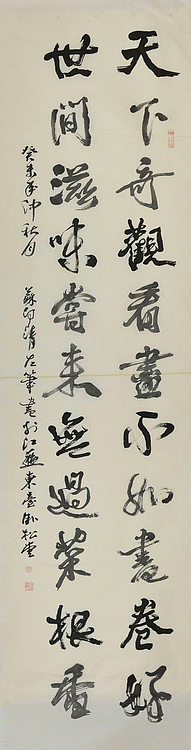 天下奇觀看盡不如書卷好
世間滋味嘗来無過菜根香
癸未年仲秋月 蘇印清左筆書於江蘇東臺臥松堂